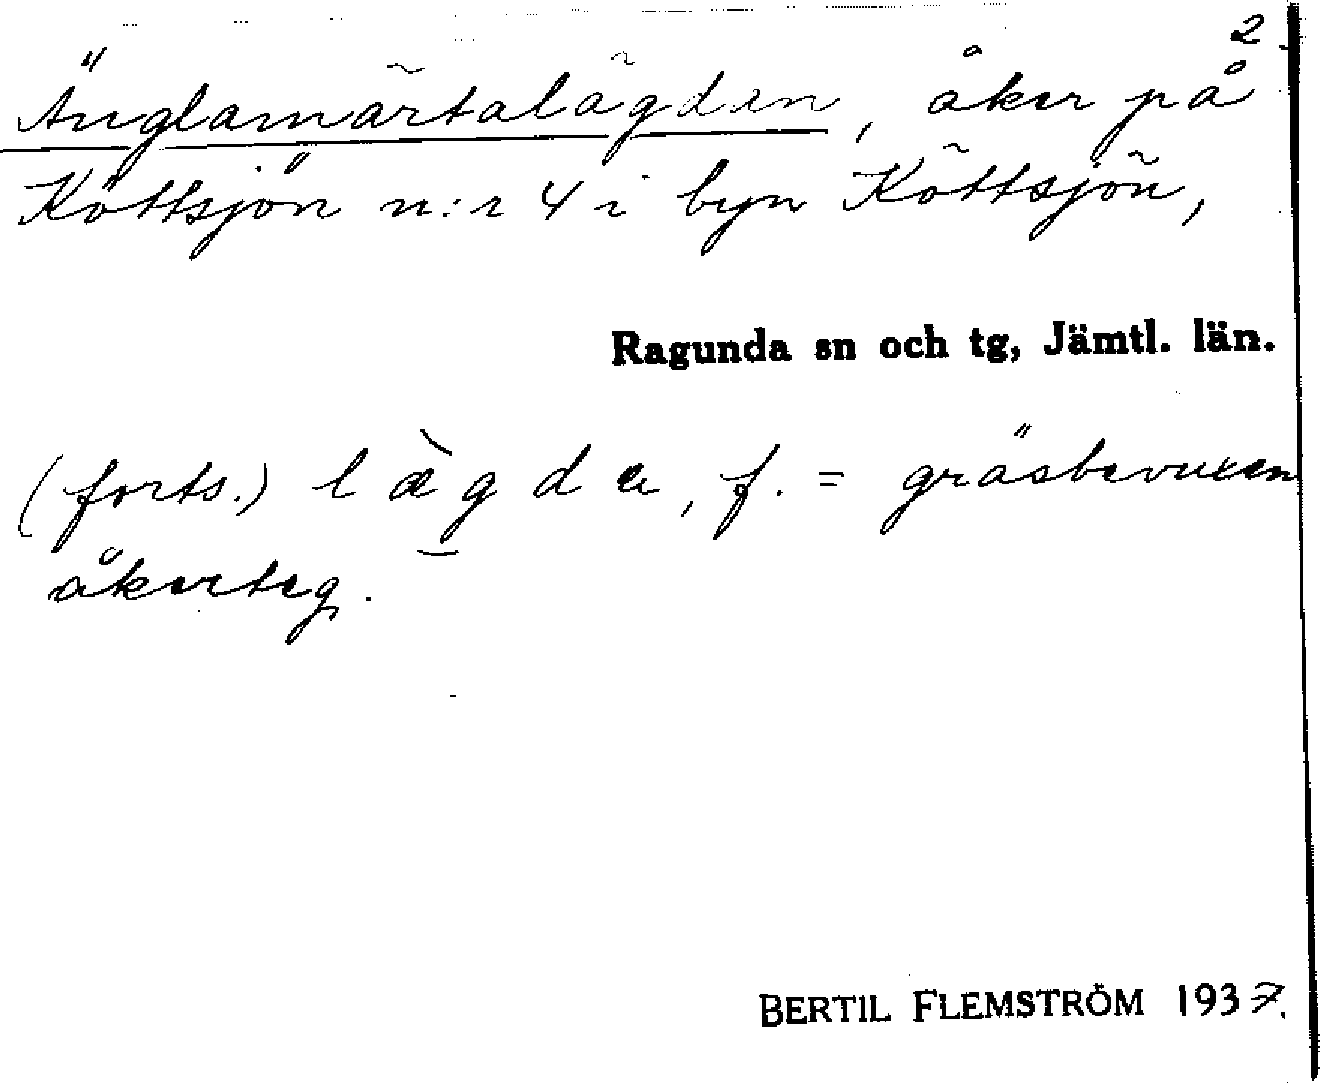 2
Änglamärtalägden, åker på
Köttsjön n:r 4 i byn Köttsjön,
Ragunda sn och tg, Jämtl. län.
(forts.) l æ̀ g d a, f. = gräsbevuxen
åkerteg.
BERTIL FLEMSTRÖM 1937.